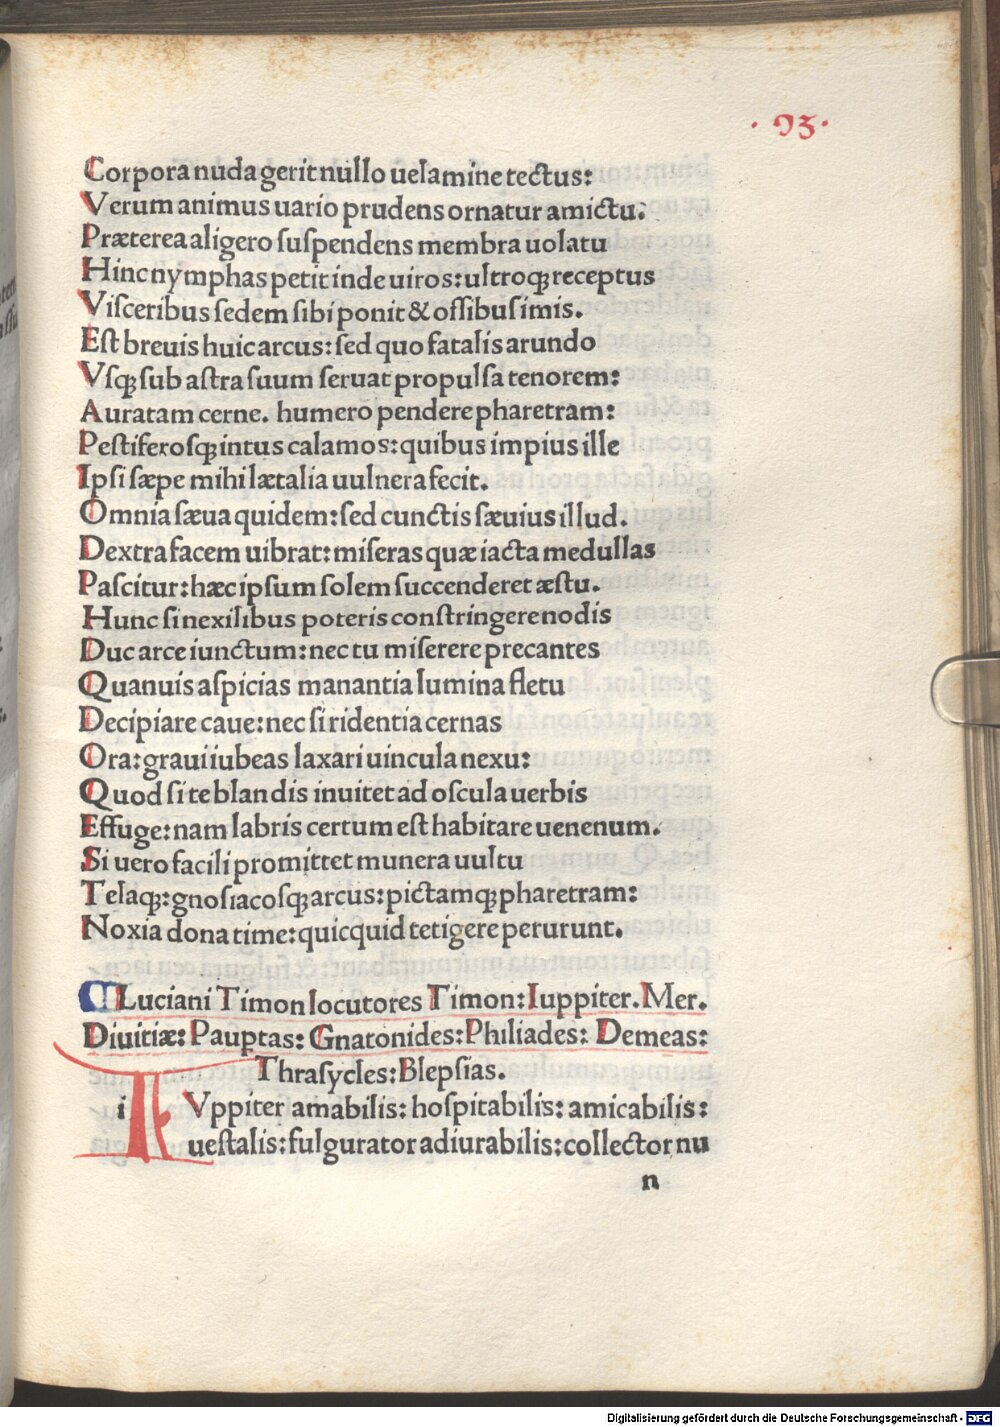 · 93 ·
Corpora nuda gerit nullo uelamine tectus:
Verum animus uario prudens ornatur amictu:
Præterea aligero suspendens membra uolatu
Hinc nymphas petit inde uiros: ultroqꝫ receptus
Visceribus sedem sibi ponit & ossibus imis.
Est breuis huic arcus: sed quo fatalis arundo
Vsqꝫ sub astra suum seruat propulsa tenorem:
Auratam cerne. humero pendere pharetram:
Pestiferosqꝫ intus calamos: quibus impius ille
Ipsi sæpe mihi lætalia uulnera fecit.
Omnia sæua quidem: sed cunctis sæuius illud.
Dextra facem uibrat: miseras quæ iacta medullas
Pascitur: hæc ipsum solem succenderet æstu.
Hunc si nexilibus poteris constringere nodis
Duc arce iunctum: nec tu miserere precantes
Quanuis aspicias manantia lumina fletu
Decipiare caue: nec si ridentia cernas
Ora: graui iubeas laxari uincula nexu:
Quod si te blandis inuitet ad oscula uerbis
Effuge: nam labris certum est habitare uenenum.
Si uero facili promittet munera uultu
Telaqꝫ: gnosiacosqꝫ arcus: pictamqꝫ pharetram:
Noxia dona time: quicquid tetigere perurunt.
Luciani Timon locutores Timon: Iuppiter. Mer.
Diuitiæ: Pauꝑtas: Gnatonides: Philiades: Demeas:
Thrasycles: Blepsias.
i Vppiter amabilis: hospitabilis: amicabilis:
uestalis: fulgurator adiurabilis: collector nu
n
Digitalisierung gefördert durch die Deutsche Forschungsgemeinschaft - DFG